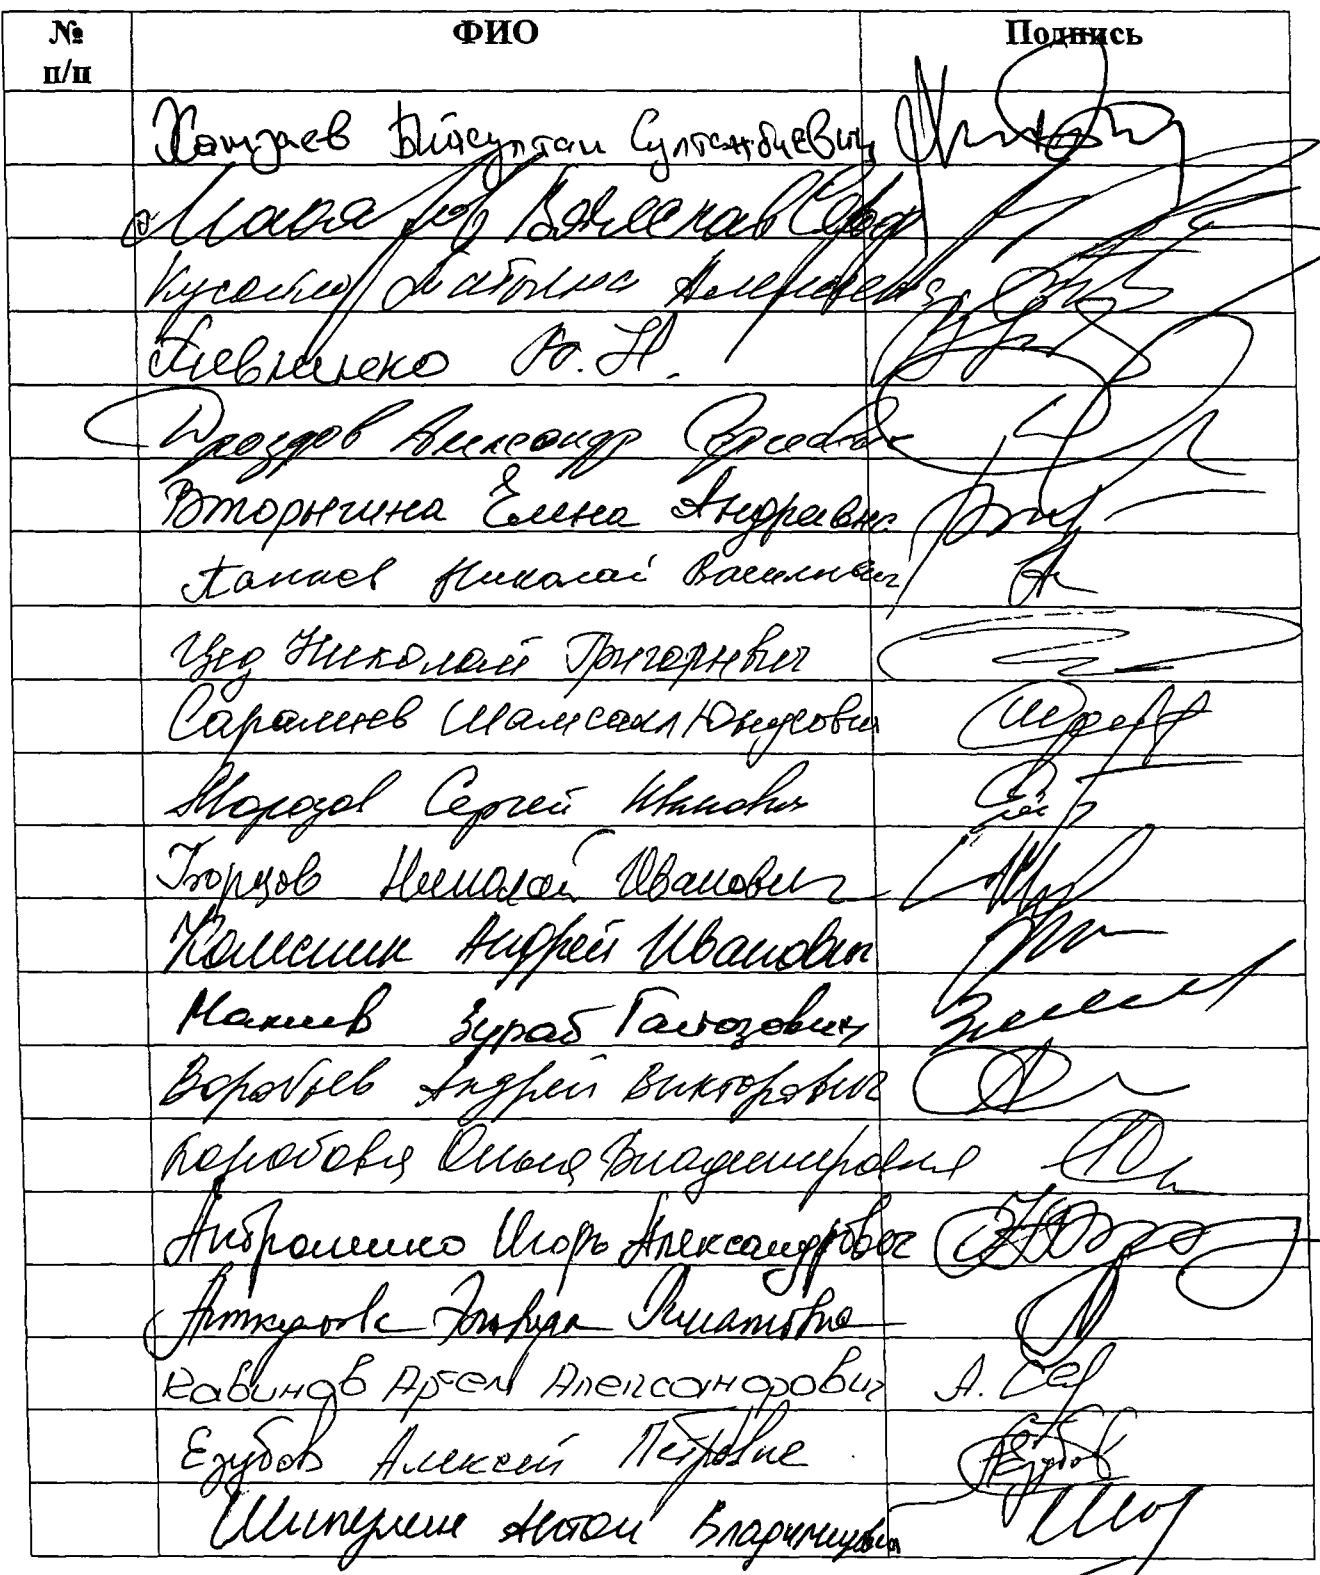 № п/п ФИО Подпись
Хамзаев Бийсултан Султанбиевич
Вячеслав
Кусайко Татьяна Алексеевна
Певненко Ю.Н.
Дроздов Александр Сергеевич
Вторыгина Елена Андреевна
Панков Николай Васильевич
Цед Николай Григорьевич
Саралиев Шамсаил Юнусович
Морозов Сергей Иванович
Борцов Николай Иванович
Колесник Андрей Иванович
Макиев Зураб Гайозович
Воробьев Андрей Викторович
Коробова Ольга Владимировна
Антрошенко Игорь Александрович
Аиткулова Эльвира Ринатовна
Кавинов Артем Александрович
Езубов Алексей Петрович
Шипулин Антон Владимирович